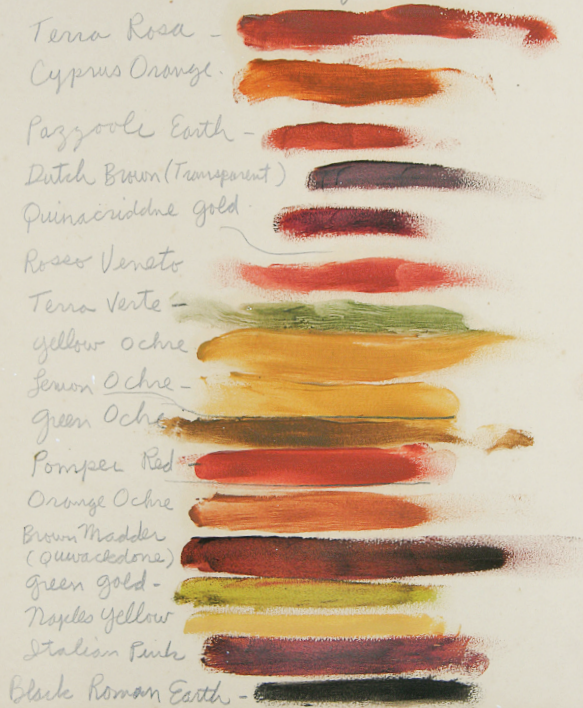 Terra Rosa -
Cyprus Orange.
Pazzoole Earth -
Dutch Brown (Transparent)
Quinacriddne gold
Rosso Veneto
Terra Verte -
yellow Ochre
Lemon Ochre -
green Ochre
Pomper Red -
Orange Ochre
Brown Madder
(Quinackdone)
green gold -
Naples Yellow
Italian Pink
Black Roman Earth -